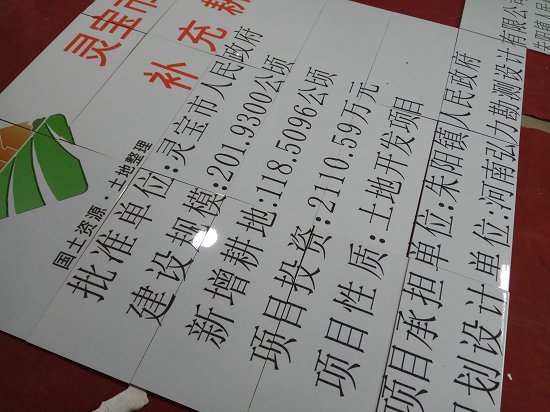 灵宝市
补充耕
国土资源·土地整理
批准单位:灵宝市人民政府
建设规模:201.9300公顷
新增耕地:118.5096公顷
项目投资:2110.59万元
项目性质:土地开发项目
项目承担单位:朱阳镇人民政府
划设计单位:河南弘力勘测设计有限公司
朱阳镇人民